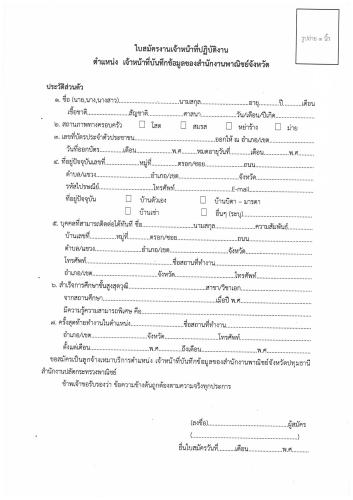 รูปถ่าย ๑ นิ้ว
ใบสมัครงานเจ้าหน้าที่ปฏิบัติงาน
ตำแหน่ง เจ้าหน้าที่บันทึกข้อมูลของสำนักงานพาณิชย์จังหวัด
ประวัติส่วนตัว
๑. ชื่อ (นาย,นาง,นางสาว)..............................นามสกุล..........................อายุ..........ปี..........เดือน
เชื้อชาติ....................สัญชาติ....................ศาสนา....................วัน/เดือน/ปีเกิด....................
๒. สถานภาพทางครอบครัว ☐ โสด ☐ สมรส ☐ หย่าร้าง ☐ ม่าย
๓. เลขที่บัตรประจำตัวประชาชน..............................ออกให้ ณ อำเภอ/เขต....................
วันที่ออกบัตร..........เดือน....................พ.ศ..........หมดอายุวันที่..........เดือน..........พ.ศ..........
๔. ที่อยู่ปัจจุบันเลขที่..........หมู่ที่..........ตรอก/ซอย....................ถนน....................
ตำบล/แขวง....................อำเภอ/เขต....................จังหวัด....................
รหัสไปรษณีย์....................โทรศัพท์....................E-mail....................
ที่อยู่ปัจจุบัน ☐ บ้านตัวเอง ☐ บ้านบิดา - มารดา
☐ บ้านเช่า ☐ อื่นๆ (ระบุ)....................
๕. บุคคลที่สามารถติดต่อได้ทันที ชื่อ....................นามสกุล....................ความสัมพันธ์..........
บ้านเลขที่..........หมู่ที่..........ตรอก/ซอย....................ถนน....................
ตำบล/แขวง....................อำเภอ/เขต....................จังหวัด....................
โทรศัพท์....................ชื่อสถานที่ทำงาน....................
อำเภอ/เขต....................จังหวัด....................โทรศัพท์....................
๖. สำเร็จการศึกษาขั้นสูงสุดวุฒิ....................สาขา/วิชาเอก....................
จากสถานศึกษา....................เมื่อปี พ.ศ.....................
มีความรู้ความสามารถพิเศษ คือ....................
๗. ครั้งสุดท้ายทำงานในตำแหน่ง....................ชื่อสถานที่ทำงาน....................
อำเภอ/เขต....................จังหวัด....................โทรศัพท์....................
ตั้งแต่เดือน....................พ.ศ...........ถึงเดือน....................พ.ศ...........
ขอสมัครเป็นลูกจ้างเหมาบริการตำแหน่ง เจ้าหน้าที่บันทึกข้อมูลของสำนักงานพาณิชย์จังหวัดปทุมธานี
สำนักงานปลัดกระทรวงพาณิชย์
ข้าพเจ้าขอรับรองว่า ข้อความข้างต้นถูกต้องตามความจริงทุกประการ
(ลงชื่อ)..............................ผู้สมัคร
(..............................)
ยื่นใบสมัครวันที่..........เดือน....................พ.ศ...........